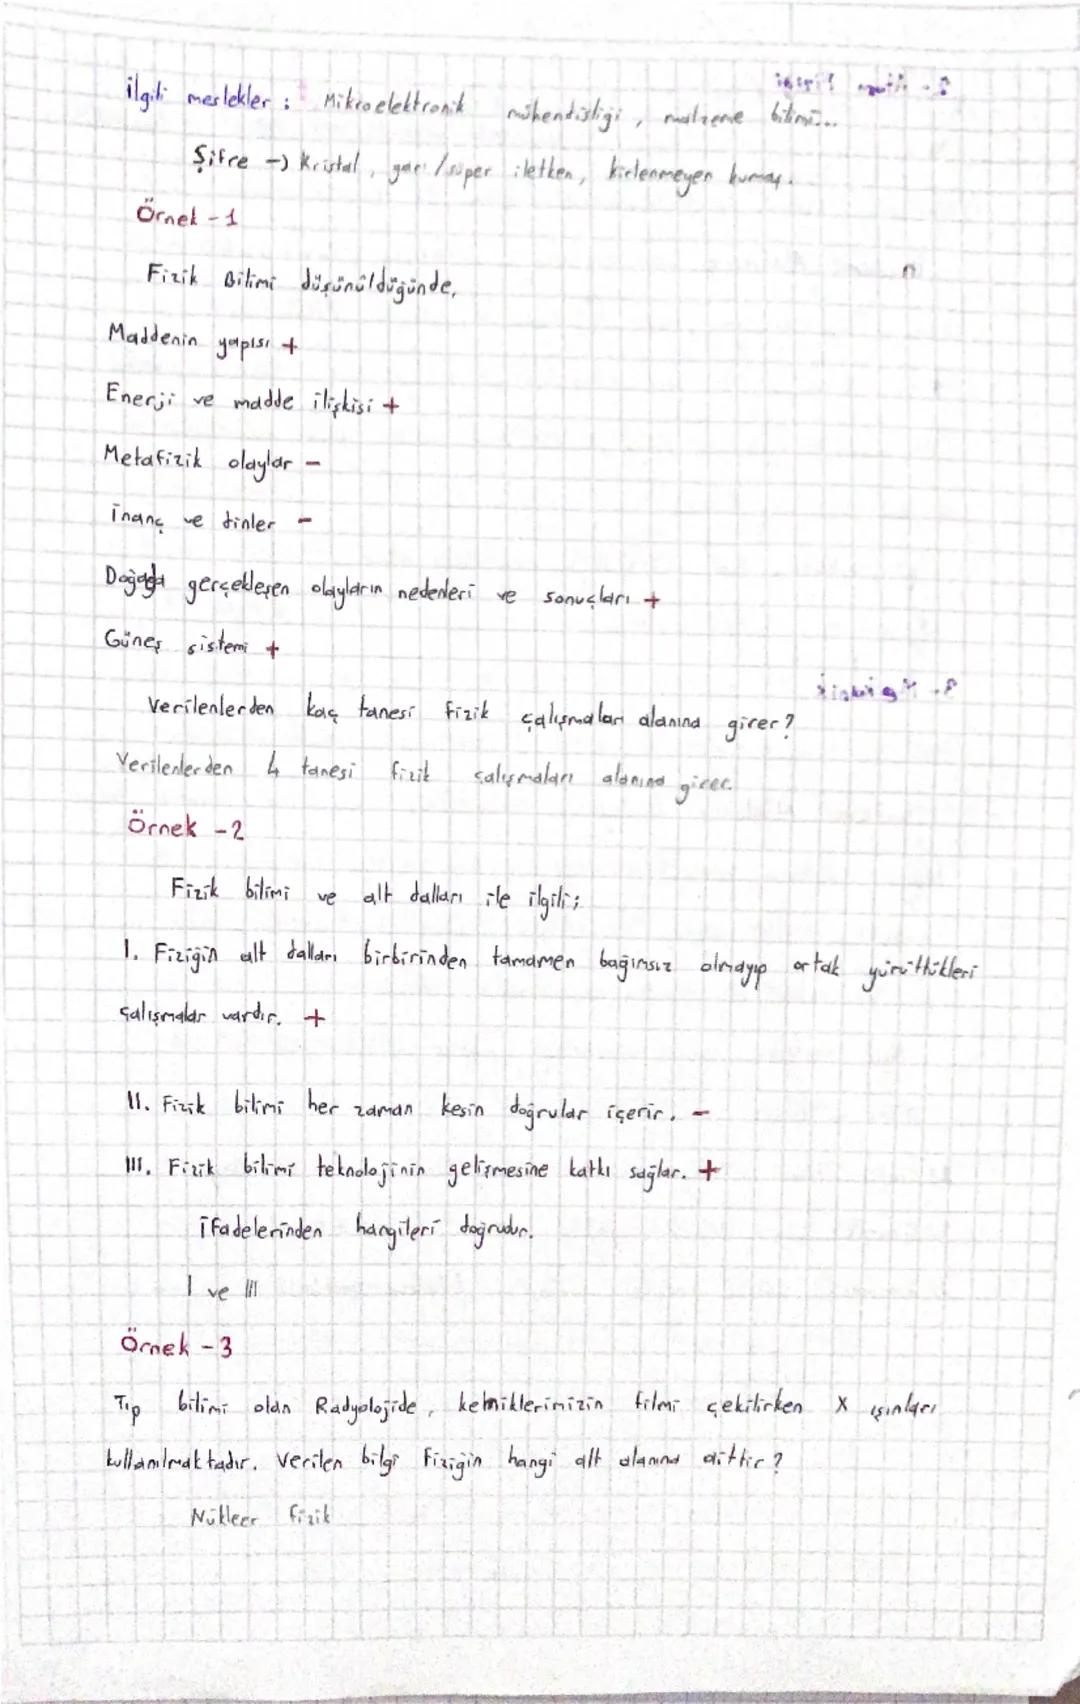 ilgili meslekler : Mikroelektronik mühendisliği , malzeme bilimi...
Şifre -> Kristal , yarı /süper iletken, kirlenmeyen kumaş.
Örnek -1
Fizik Bilimi düşünüldüğünde,
Maddenin yapısı +
Enerji ve madde ilişkisi +
Metafizik olaylar -
inanç ve dinler -
Doğada gerçekleşen olayların nedenleri ve sonuçları +
Güneş sistemi +
Verilenlerden kaç tanesi fizik çalışmaları alanına girer?
Verilenlerden 4 tanesi fizik çalışmaları alanına girer.
Örnek -2
Fizik bilimi ve alt dalları ile ilgili;
I. Fiziğin alt dalları birbirinden tamamen bağımsız olmayıp ortak yürüttükleri
çalışmalar vardır. +
II. Fizik bilimi her zaman kesin doğrular içerir. -
III. Fizik bilimi teknolojinin gelişmesine katkı sağlar. +
ifadelerinden hangileri doğrudur.
I ve III
Örnek -3
Tıp bilimi olan Radyolojide, kemiklerimizin filmi çekilirken X ışınları
kullanılmaktadır. Verilen bilgi Fiziğin hangi alt alanına aittir?
Nükleer fizik